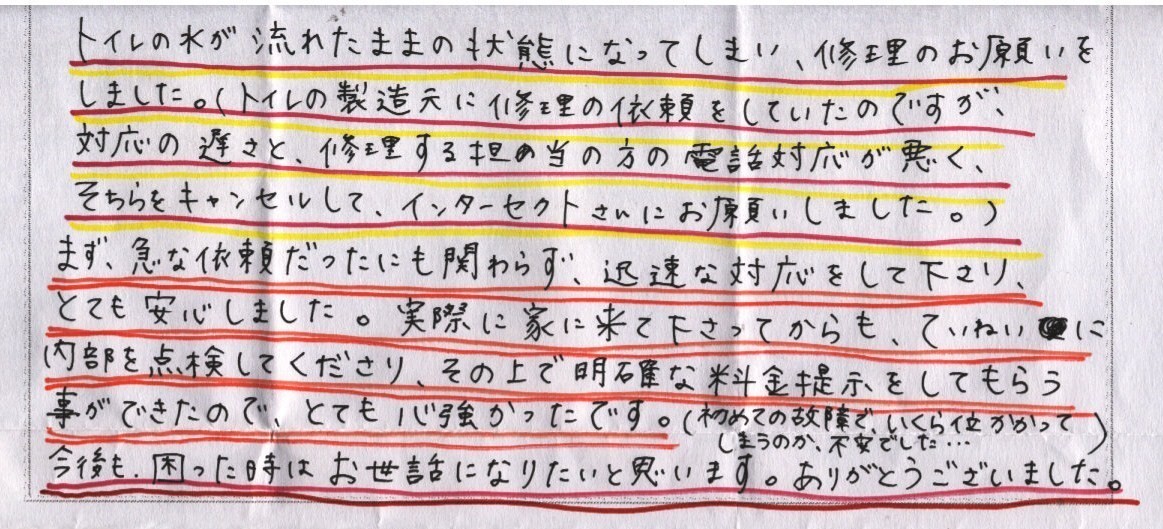 トイレの水が流れたままの状態になってしまい、修理のお願いを
しました。(トイレの製造元に修理の依頼をしていたのですが、
対応の遅さと、修理する担当の方の電話対応が悪く、
そちらをキャンセルして、インターセクトさんにお願いしました。)
まず、急な依頼だったにも関わらず、迅速な対応をして下さり、
とても安心しました。実際に家に来て下さってからも、ていねいに
内部を点検してくださり、その上で明確な料金提示をしてもらう
事ができたので、とても心強かったです。(初めての故障で、いくら位かかって
しまうのか、不安でした…)
今後も、困った時はお世話になりたいと思います。ありがとうございました。